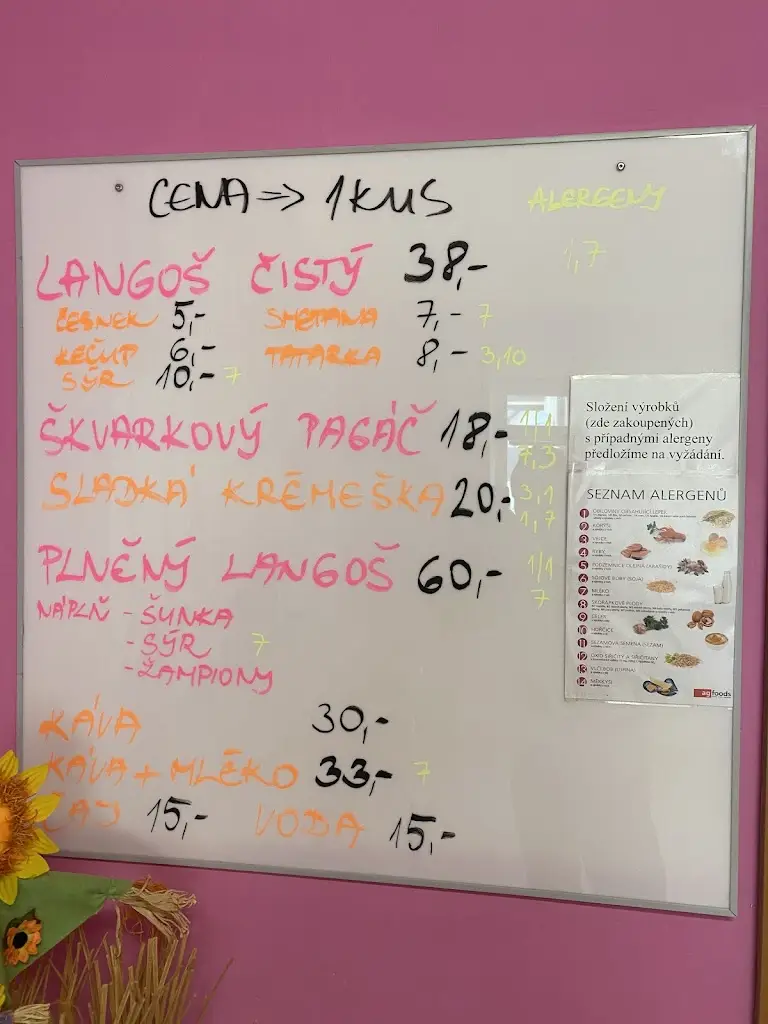 CENA => 1 KUS ALERGENY
LANGOŠ ČISTÝ 38,- 1,7
ČESNEK 5,- SMETANA 7,- 7
KEČUP 6,- TATARKA 8,- 3,10
SÝR 10,- 7
ŠKVARKOVÝ PAGÁČ 18,- 1/1
7,3
SLADKÁ KRÉMEŠKA 20,- 3,1
1,7
PLNĚNÝ LANGOŠ 60,- 1/1
7
NÁPLŇ - ŠUNKA
- SÝR 7
- ŽAMPIONY
KÁVA 30,-
KÁVA + MLÉKO 33,- 7
ČAJ 15,- VODA 15,-
Složení výrobků
(zde zakoupených)
s případnými alergeny
předložíme na vyžádání.
SEZNAM ALERGENŮ
1 OBILOVINY OBSAHUJÍCÍ LEPEK
2 KORÝŠI
3 VEJCE
4 RYBY
5 PODZEMNICE OLEJNÁ (ARAŠÍDY)
6 SÓJOVÉ BOBY (SÓJA)
7 MLÉKO
8 SKOŘÁPKOVÉ PLODY
9 CELER
10 HOŘČICE
11 SEZAMOVÁ SEMENA (SEZAM)
12 OXID SIŘIČITÝ A SIŘIČITANY
13 VLČÍ BOB (LUPINA)
14 MĚKKÝŠI
ag foods